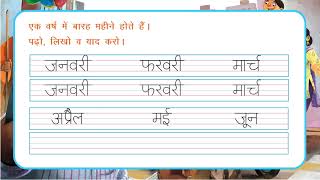 एक वर्ष में बारह महीने होते हैं।
पढ़ो, लिखो व याद करो।
जनवरी फरवरी मार्च
जनवरी फरवरी मार्च
अप्रैल मई जून